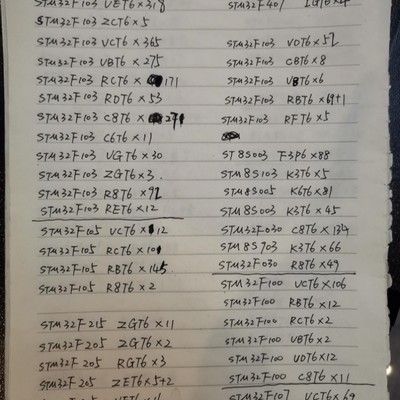 STM32F103 VET6 × 318
STM32F103 ZCT6 × 5
STM32F103 VCT6 × 365
STM32F103 VBT6 × 275
STM32F103 RCT6 × 171
STM32F103 RDT6 × 53
STM32F103 C8T6 × 271
STM32F103 C6T6 × 11
STM32F103 VGT6 × 30
STM32F103 ZGT6 × 3
STM32F103 R8T6 × 92
STM32F103 RET6 × 12
STM32F105 VCT6 × 12
STM32F105 RCT6 × 101
STM32F105 RBT6 × 145
STM32F105 R8T6 × 2
STM32F215 ZGT6 × 11
STM32F205 ZGT6 × 2
STM32F205 RGT6 × 3
STM32F205 ZET6 × 5+2
STM32F407 IGT6 ×
STM32F103 VDT6 × 52
STM32F103 CBT6 × 8
STM32F103 V8T6 × 6
STM32F103 RBT6 × 69+1
STM32F103 RFT6 × 5
ST8S003 F3P6 × 88
STM8S103 K3T6 × 5
STM8S005 K6T6 × 81
STM8S003 K3T6 × 45
STM32F030 C8T6 × 134
STM8S903 K3T6 × 66
STM32F030 R8T6 × 49
STM32F100 VCT6 × 106
STM32F100 RBT6 × 12
STM32F100 RCT6 × 2
STM32F100 VBT6 × 2
STM32F100 VDT6 × 12
STM32F100 C8T6 × 11
STM32F107 VCT6 × 69